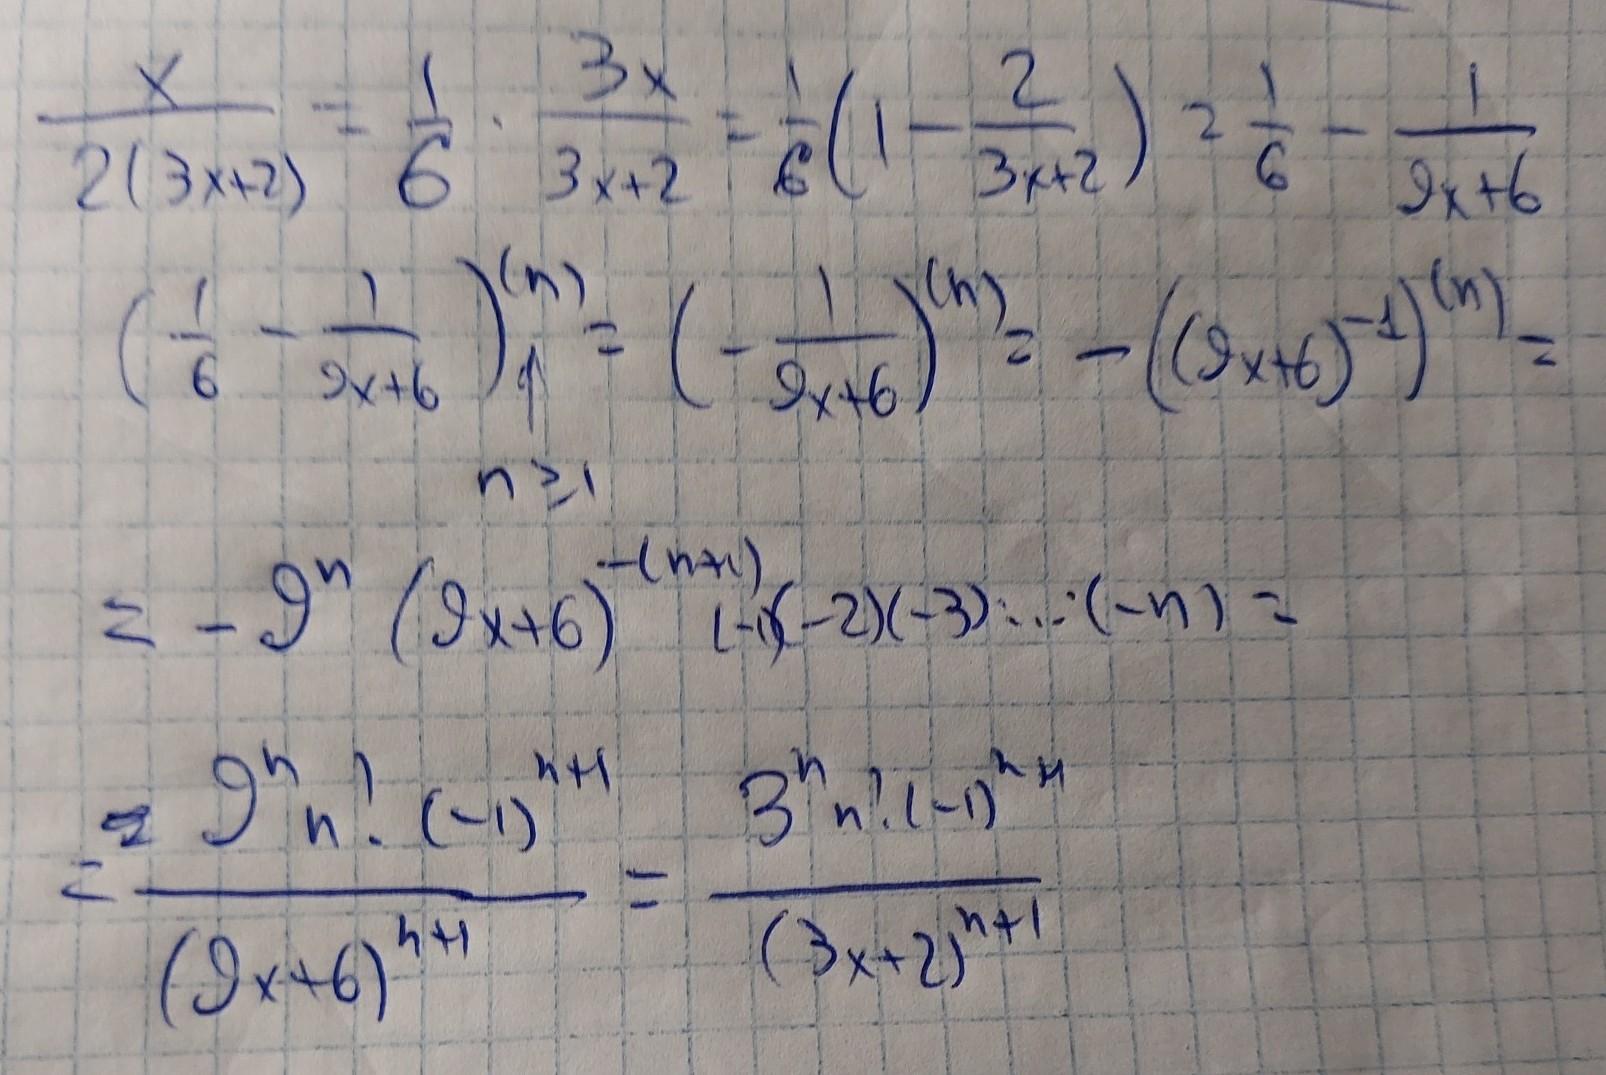 x/(2(3x+2)) = 1/6 · 3x/(3x+2) = 1/6 (1 - 2/(3x+2)) = 1/6 - 1/(9x+6)
(1/6 - 1/(9x+6))^(n) = (- 1/(9x+6))^(n) = - ((9x+6)^-1)^(n) =
↑
n ≥ 1
= - 9^n (9x+6)^-(n+1) (-1)(-2)(-3)·...·(-n) =
= 9^n n! · (-1)^n+1 / (9x+6)^n+1 = 3^n n! · (-1)^n+1 / (3x+2)^n+1